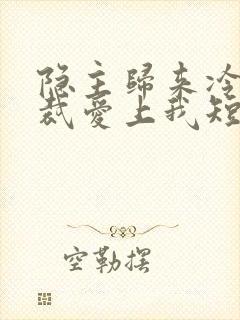 隐主歸来冷
裁愛上我短
空勒摆